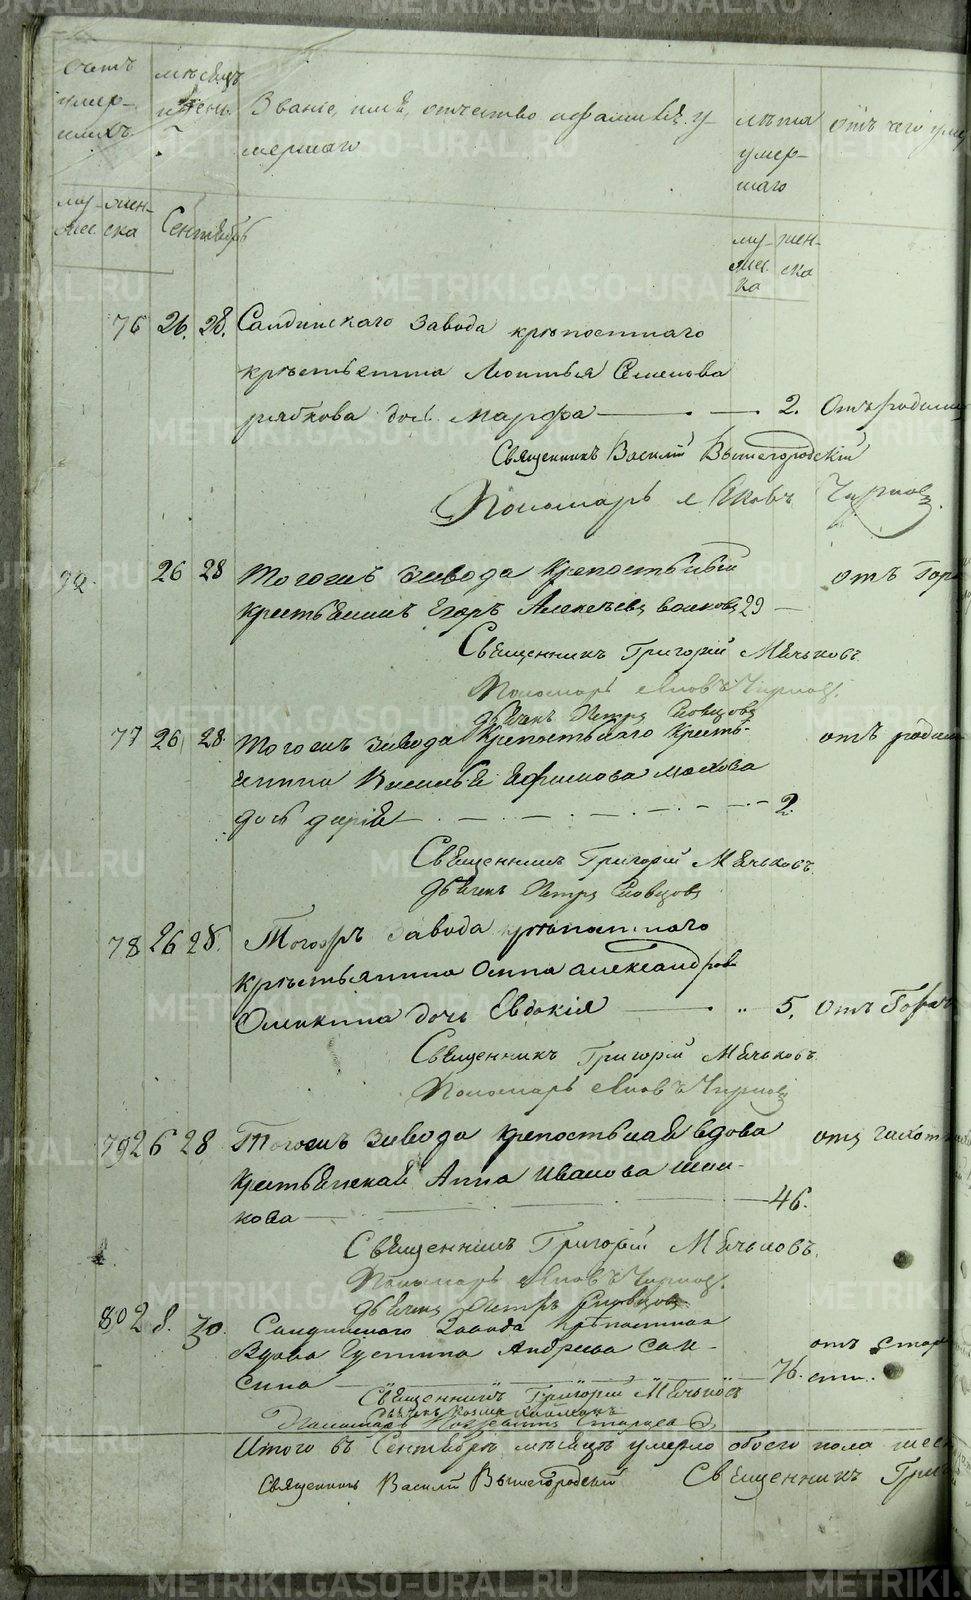 Счетъ умер- шихъ
мѣсяцъ и день
Званіе, имя, отчество и фамилія у-
мершаго
лѣта умер- шаго
отъ чего уме
му- жес. жен- ска
Сентябрь
му- жес. ка жен- ска
76 26. 28. Салдинскаго завода крѣпостнаго
крѣстьянина Леонтья Семенова
рябкова дочь Марфа — 2. Отъ родим
Священникъ Василій Вышегородскій
Пономарь Яковъ
92. 26 28 Тогожъ завода Крепостный отъ Горя
крестьянинъ Егоръ Алексѣевъ волковъ 29 —
Священникъ Григорій Мячьковъ
Пономарь Яковъ
дьячекъ Петръ Словцовъ
77 26 28 Тогожъ завода Крепостнаго Кресть- отъ родим
янина Василья Ефимова
дочь дарія — 2.
Священникъ Григорій Мячьковъ.
дьячекъ Петръ Словцовъ
78 26 28. Тогожъ завода крѣпостнаго
крѣстьянина Осипа александрова
дочь Евдокія — " 5. Отъ Горяч
Священникъ Григорій Мячьковъ.
Пономарь Яковъ
79 26 28 Тогожъ завода крепостьная вдова отъ чихот
Крестьянская Анна Иванова
кова — 46.
Священникъ Григорій Мячьковъ.
Пономарь Яковъ
дьячекъ Петръ Словцовъ
80 28. 30. Салдинскаго Завода Крѣпостная
Вдова Андреева Сан- отъ стар
сина — 76. сти.
Священникъ Григорій Мячьковъ
Дьячекъ Козма
Итого въ Сентябрѣ мѣсяцѣ умерло обоего пола
Священникъ Василій Вышегородскій Священникъ Григ
METRIKI.GASO-URAL.RU